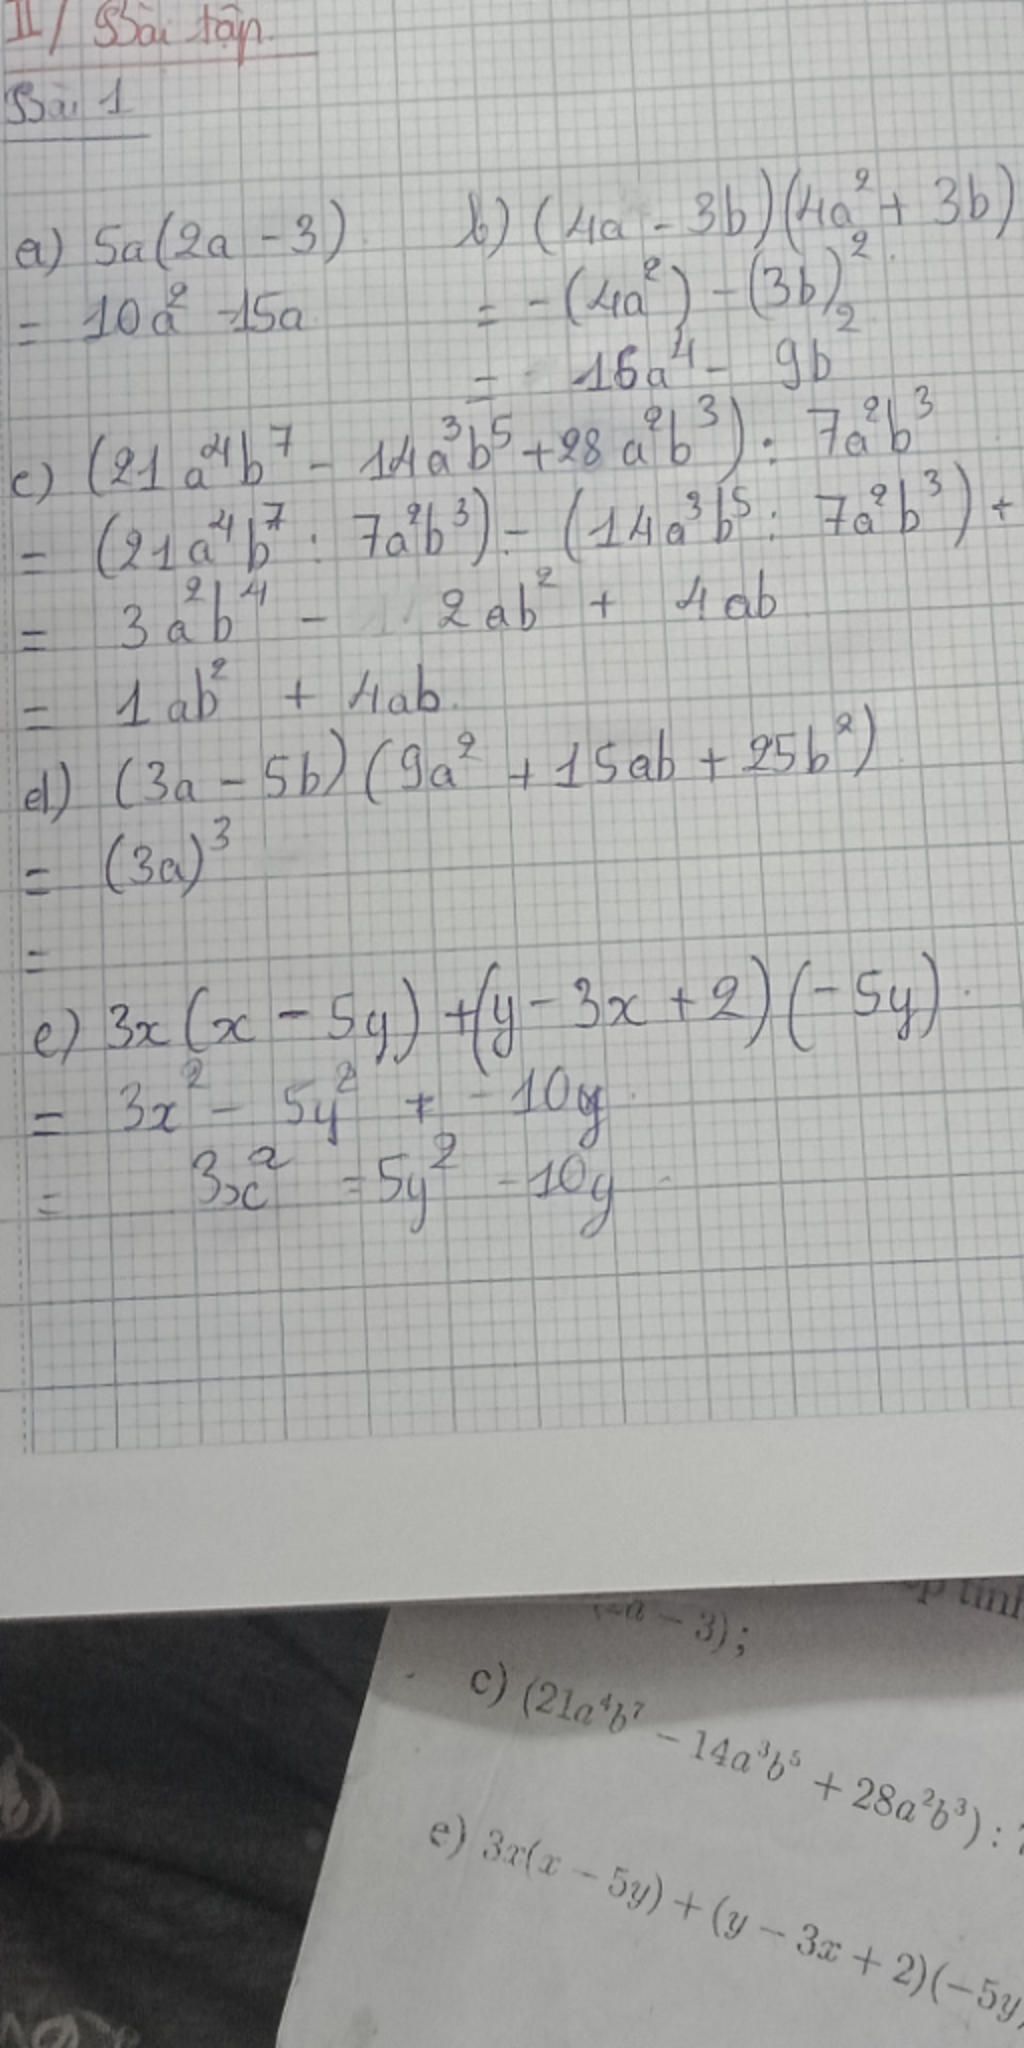 II/ Bài tập.
Bài 1
a) 5a(2a - 3)
= 10a² - 15a
b) (4a - 3b)(4a² + 3b)
= -(4a²) - (3b)²
= 16a⁴ - 9b²
c) (21a⁴b⁷ - 14a³b⁵ + 28a²b³) : 7a²b³
= (21a⁴b⁷ : 7a²b³) - (14a³b⁵ : 7a²b³) +
= 3a²b⁴ - 2ab² + 4ab
= 1ab² + 4ab.
d) (3a - 5b)(9a² + 15ab + 25b²)
= (3a)³
=
e) 3x(x - 5y) + (y - 3x + 2)(-5y).
= 3x² - 5y² + - 10y
= 3x² - 5y² - 10y
a - 3);
c) (21a⁴b⁷ - 14a³b⁵ + 28a²b³) :
e) 3x(x - 5y) + (y - 3x + 2)(-5y